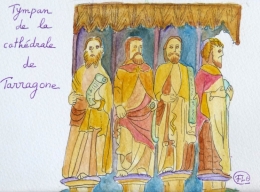 Tympan
de la
cathédrale
de
Tarragone